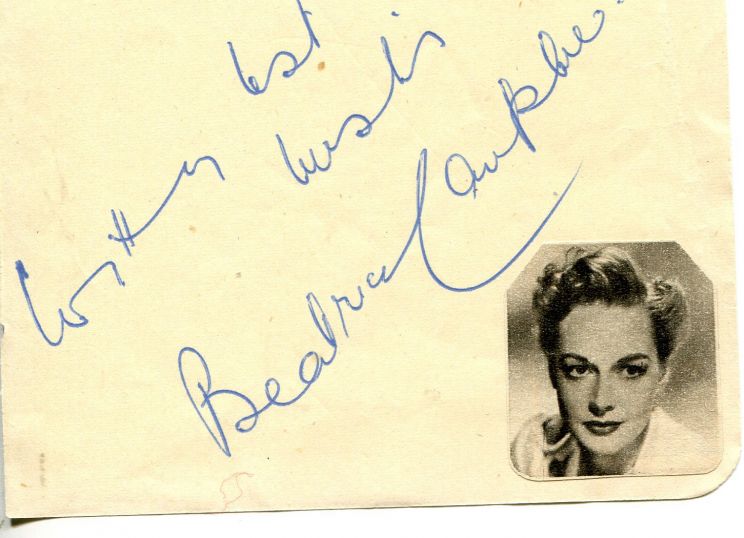 With my best
wishes
Beatrice Campbell